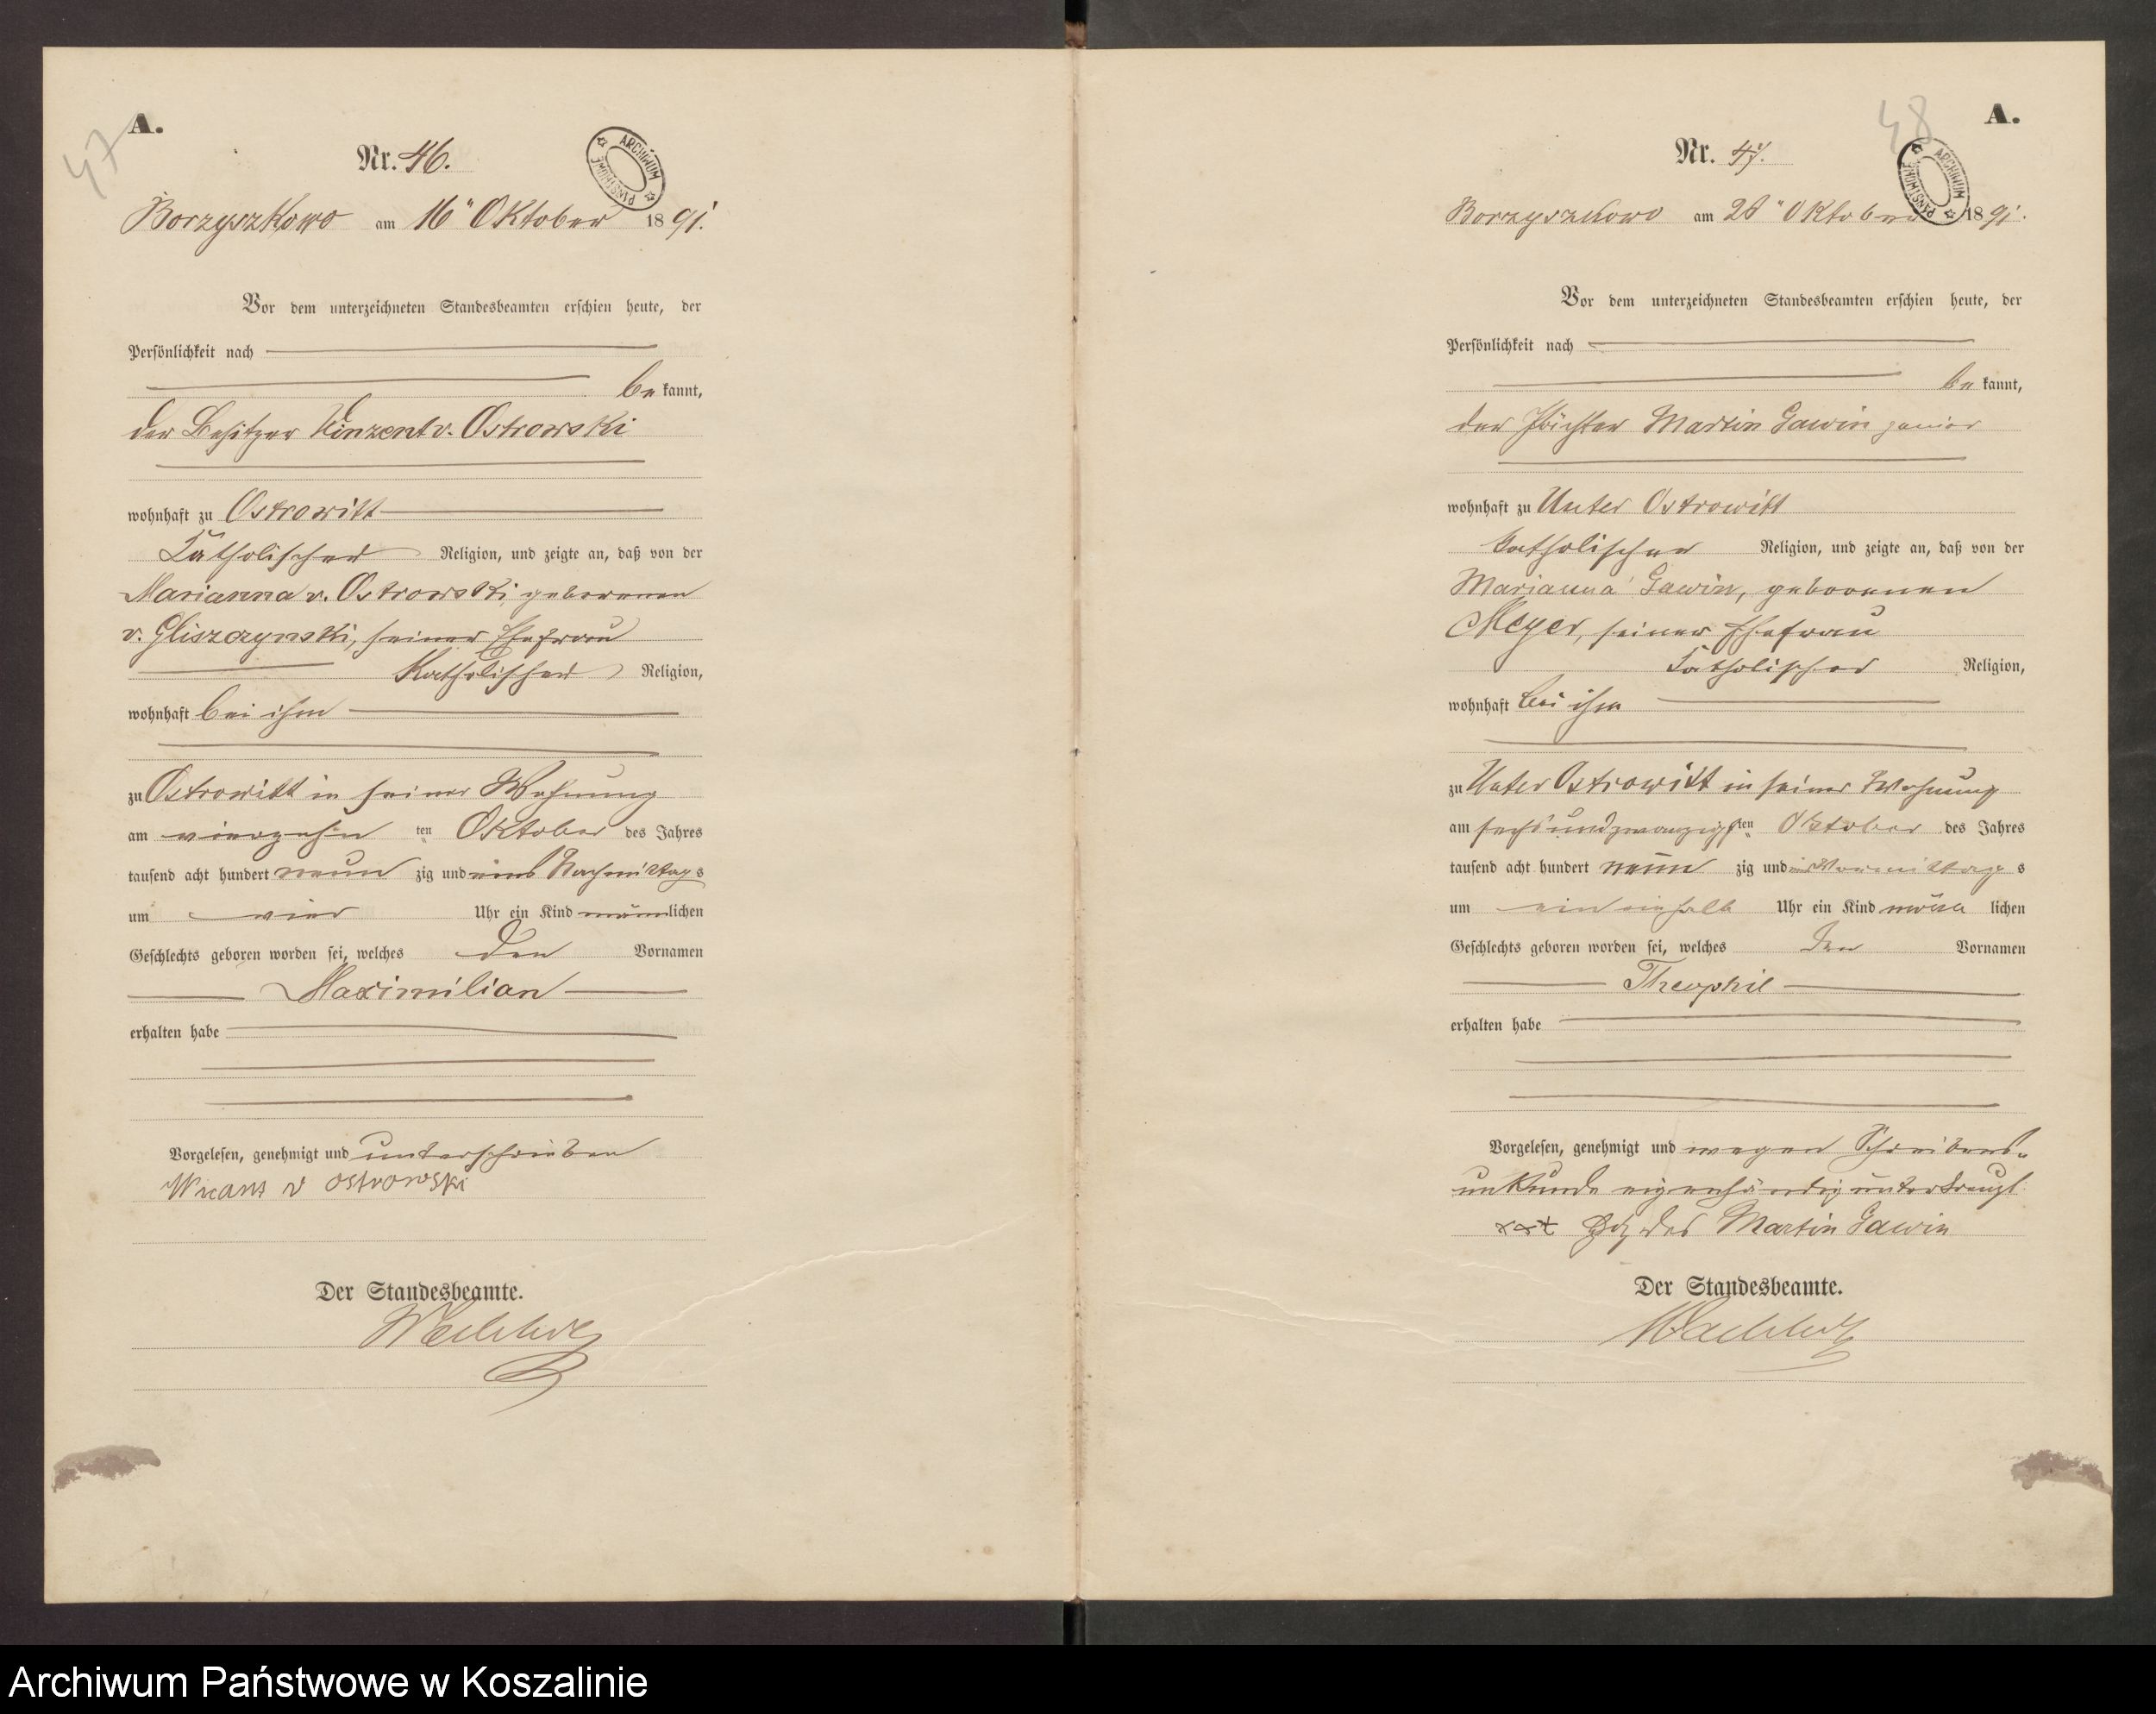 47
A.
Nr. 46.
ARCHIWUM PAŃSTWOWE
Borzyszkowo am 16" Oktober 1891.
Vor dem unterzeichneten Standesbeamten erschien heute, der
Persönlichkeit nach
be kannt,
der Besitzer Vinzent v. Ostrowski
wohnhaft zu Ostrowitt
katholischer Religion, und zeigte an, daß von der
Marianna v. Ostrowski, geborenen
v. Gliszczynski, seiner Ehefrau
katholischer Religion,
wohnhaft bei ihm
zu Ostrowitt in seiner Wohnung
am vierzehn ten Oktober des Jahres
tausend acht hundert neun zig und eins Nachmittags
um vier Uhr ein Kind männlichen
Geschlechts geboren worden sei, welches den Vornamen
Maximilian
erhalten habe
Vorgelesen, genehmigt und unterschrieben
v Ostrowski
Der Standesbeamte.
48
A.
Nr. 47.
ARCHIWUM PAŃSTWOWE
Borzyszkowo am 28" Oktober 1891.
Vor dem unterzeichneten Standesbeamten erschien heute, der
Persönlichkeit nach
be kannt,
der Pächter Martin Gawin junior
wohnhaft zu Unter Ostrowitt
katholischer Religion, und zeigte an, daß von der
Marianna Gawin, geborenen
Meyer, seiner Ehefrau
katholischer Religion,
wohnhaft bei ihm
zu Unter Ostrowitt in seiner Wohnung
am sechsundzwanzigsten Oktober des Jahres
tausend acht hundert neun zig und eins Vormittags
um ein einhalb Uhr ein Kind männ lichen
Geschlechts geboren worden sei, welches den Vornamen
Theophil
erhalten habe
Vorgelesen, genehmigt und wegen Schreibens-
unkunde eigenhändig unterkreuzt.
xxx Hdz. des Martin Gawin
Der Standesbeamte.
Archiwum Państwowe w Koszalinie